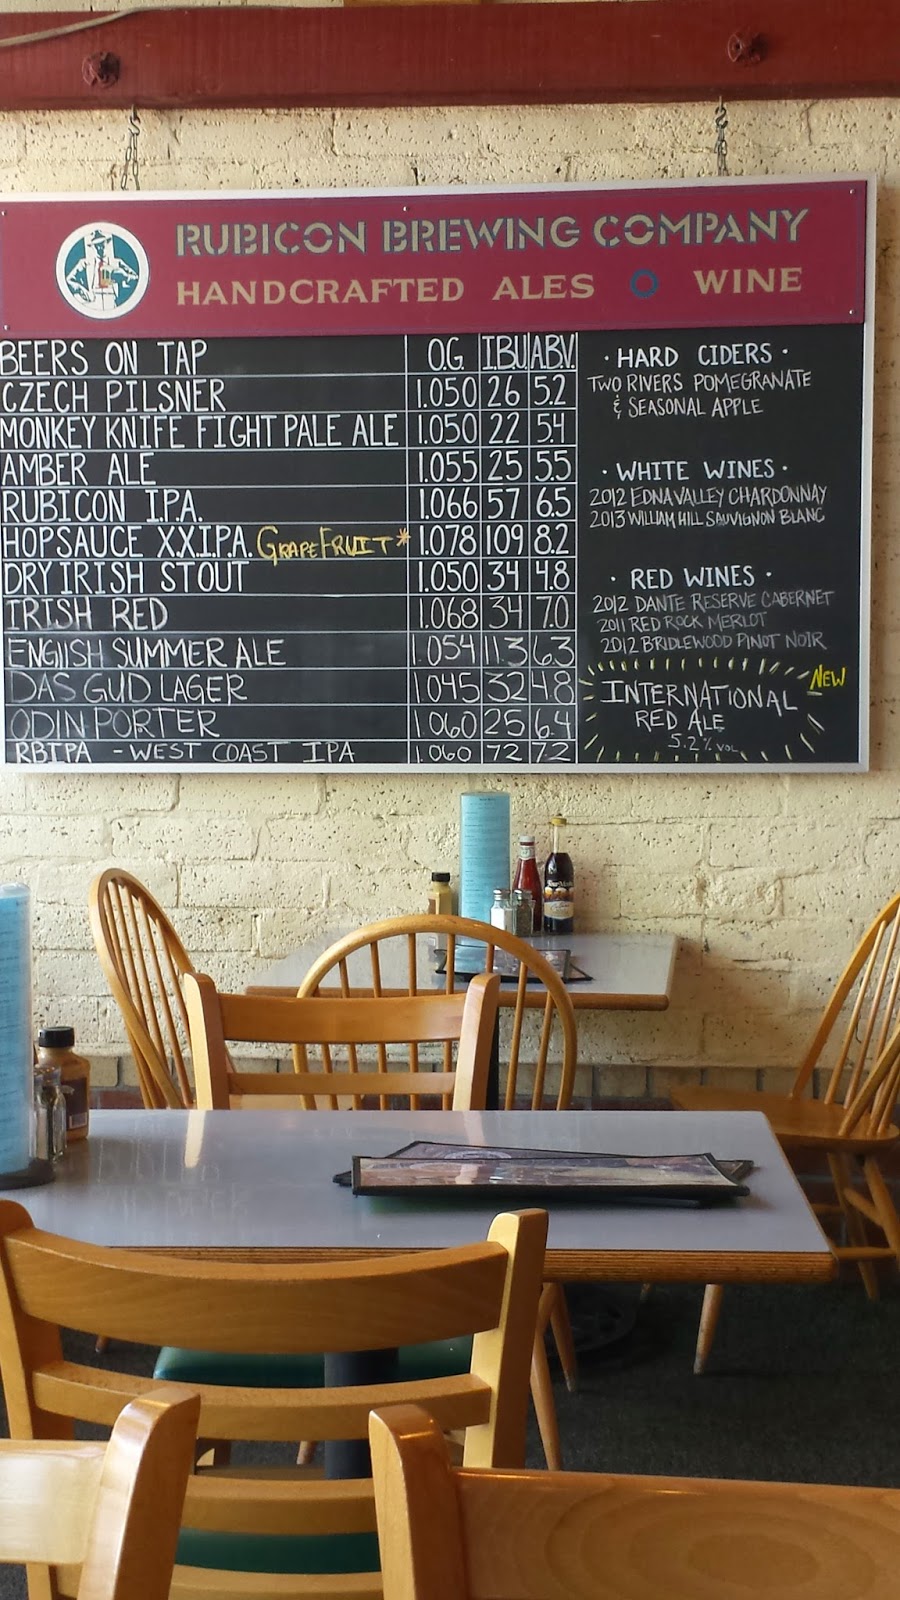 RUBICON BREWING COMPANY
HANDCRAFTED ALES WINE
BEERS ON TAP O.G. I.B.U. A.B.V.
CZECH PILSNER 1.050 26 5.2
MONKEY KNIFE FIGHT PALE ALE 1.050 22 5.4
AMBER ALE 1.055 25 5.5
RUBICON I.P.A. 1.066 57 6.5
HOPSAUCE X.X.I.P.A. GRAPEFRUIT* 1.078 109 8.2
DRY IRISH STOUT 1.050 34 4.8
IRISH RED 1.068 34 7.0
ENGLISH SUMMER ALE 1.054 11.3 6.3
DAS GUD LAGER 1.045 32 4.8
ODIN PORTER 1.060 25 6.4
RBIPA - WEST COAST IPA 1.060 72 7.2
· HARD CIDERS ·
TWO RIVERS POMEGRANATE
& SEASONAL APPLE
· WHITE WINES ·
2012 EDNA VALLEY CHARDONNAY
2013 WILLIAM HILL SAUVIGNON BLANC
· RED WINES ·
2012 DANTE RESERVE CABERNET
2011 RED ROCK MERLOT
2012 BRIDLEWOOD PINOT NOIR
NEW
INTERNATIONAL
RED ALE
5.2% VOL